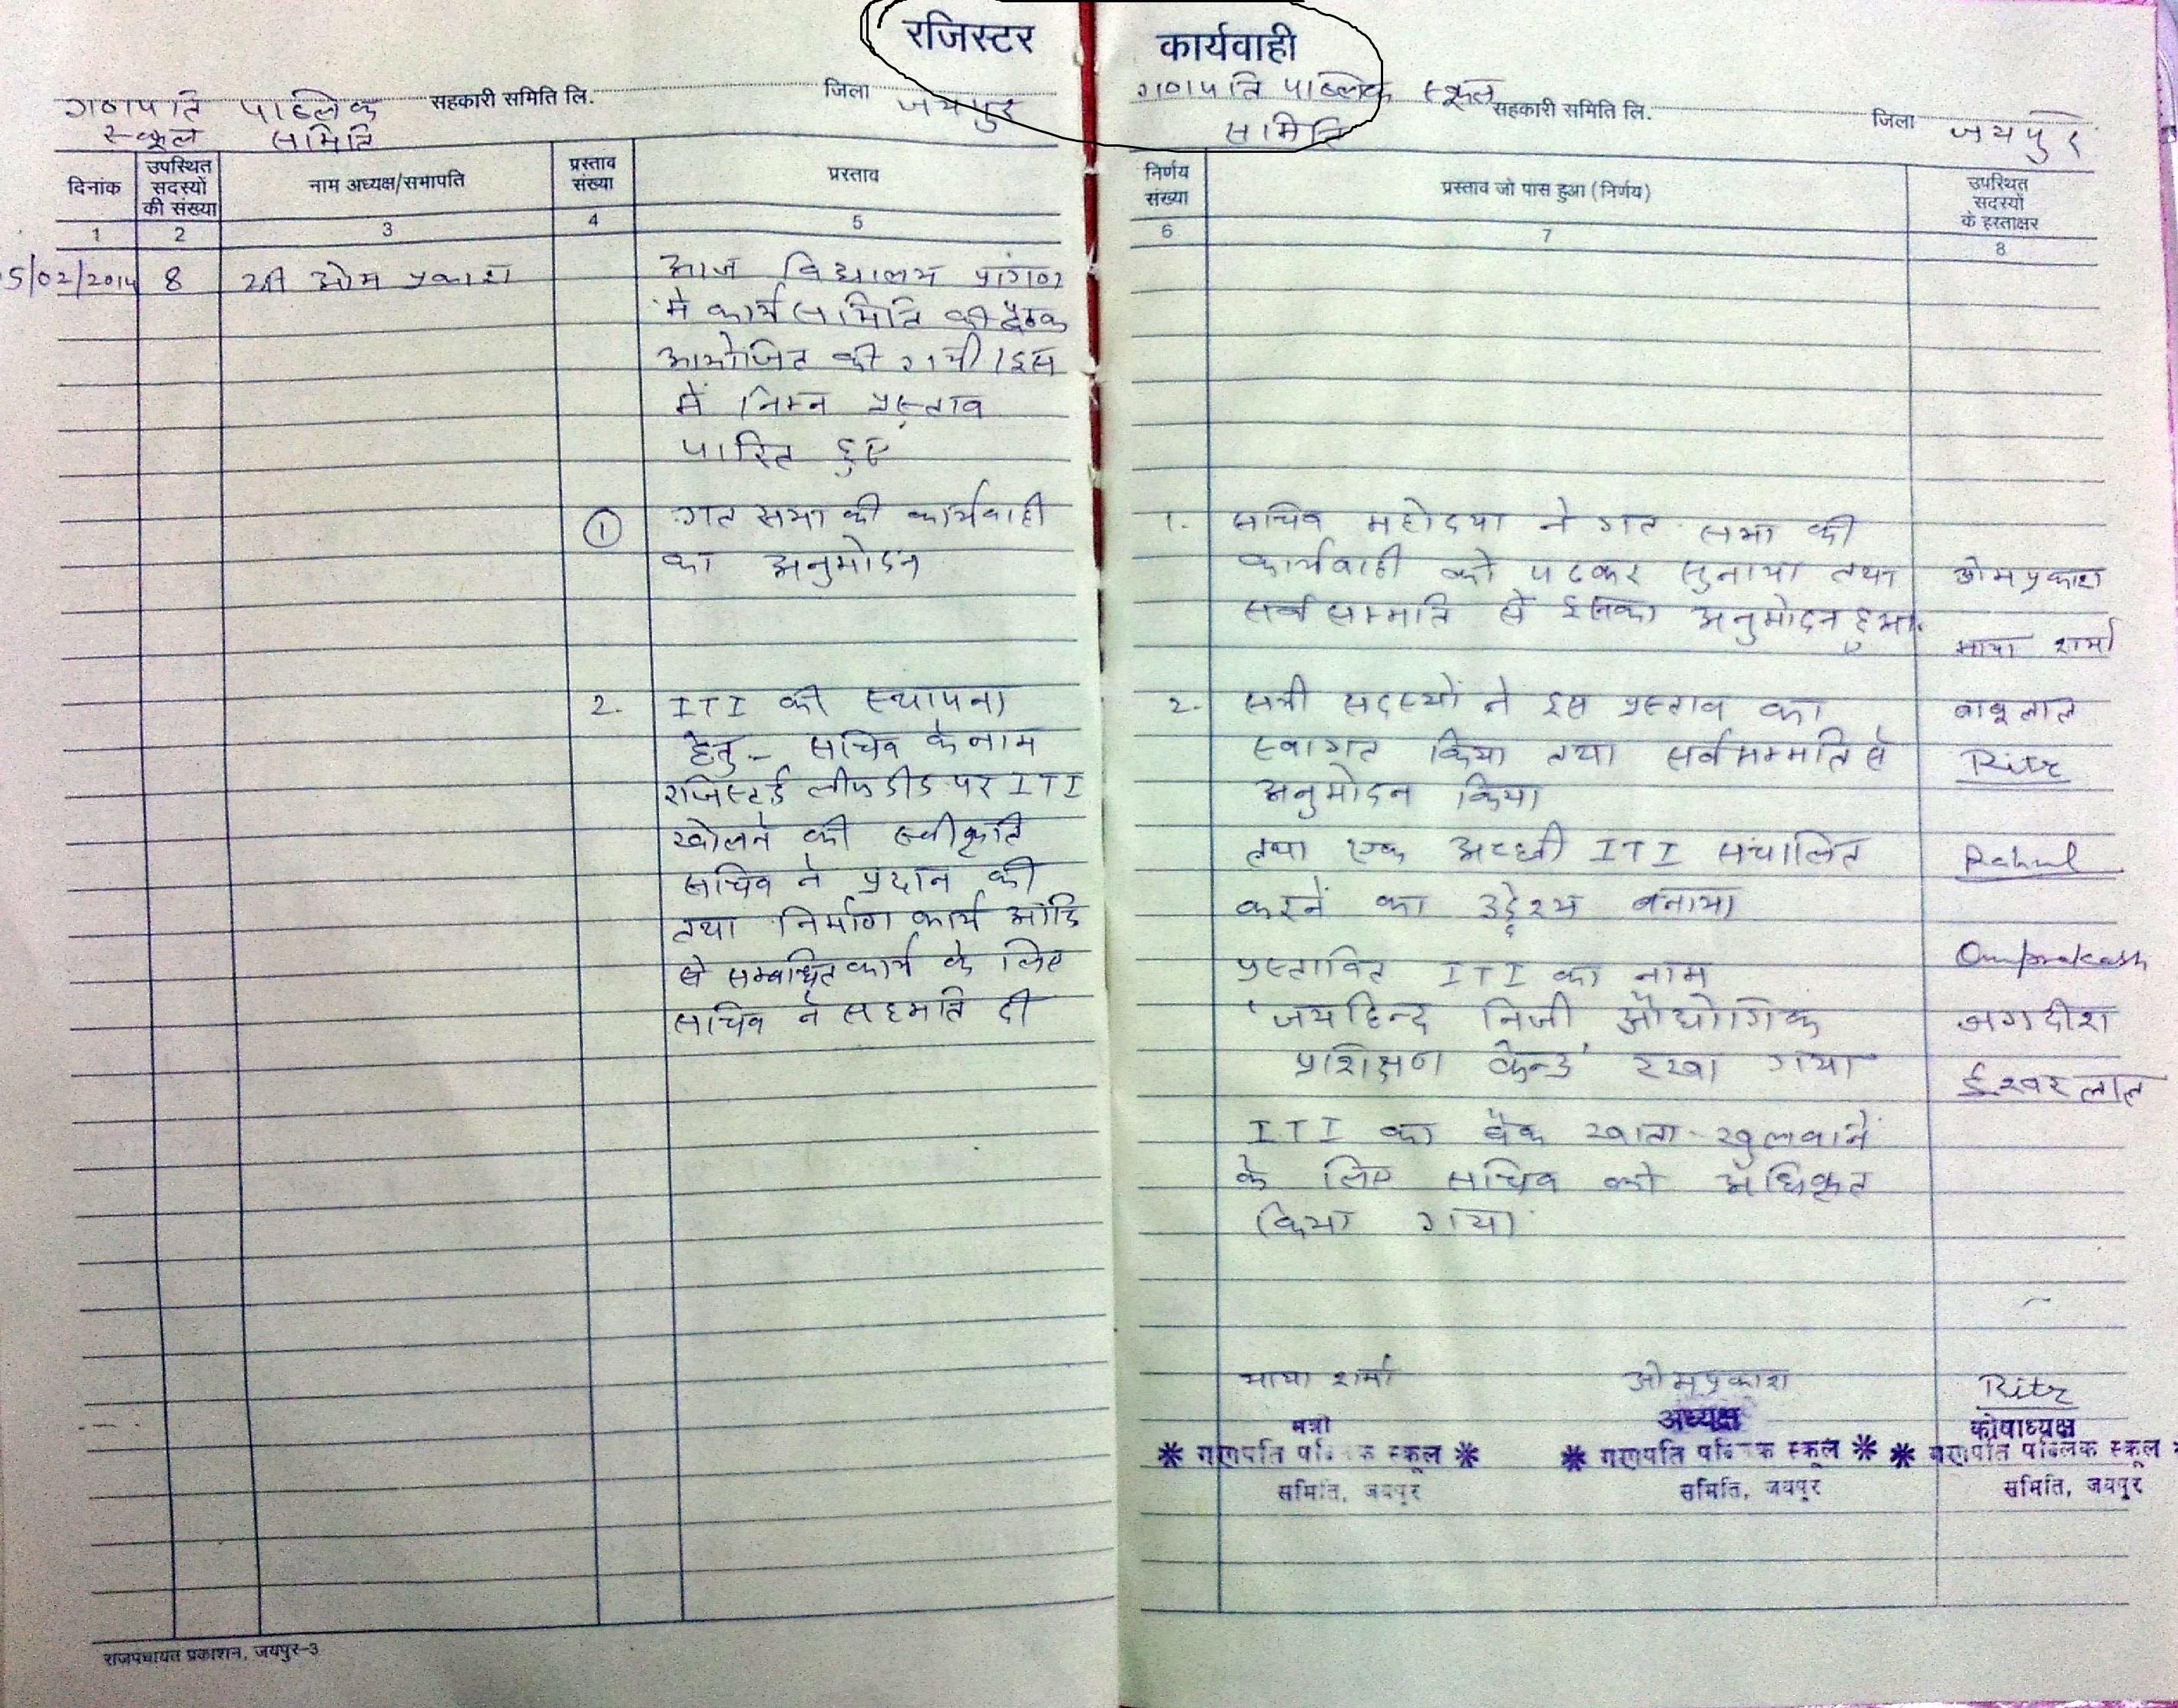 रजिस्टर कार्यवाही
गणपति पाब्लिक सहकारी समिति लि. जिला जयपुर
स्कूल समिति
दिनांक उपस्थित सदस्यों की संख्या नाम अध्यक्ष/सभापति प्रस्ताव संख्या प्रस्ताव
1 2 3 4 5
5/02/2014 8 श्री ओम प्रकाश आज विद्यालय प्रांगण
में कार्य समिति की बैठक
आयोजित की गयी। इस
में निम्न प्रस्ताव
पारित हुए
1 गत सभा की कार्यवाही
का अनुमोदन
2. ITI की स्थापना
हेतु - सचिव के नाम
रजिस्टर्ड लीज डीड पर ITI
खोलने की स्वीकृति
सचिव ने प्रदान की
तथा निर्माण कार्य आदि
से सम्बंधित कार्य के लिए
सचिव ने सहमति दी
राजपंचायत प्रकाशन, जयपुर-3
गणपति पाब्लिक स्कूल सहकारी समिति लि. जिला जयपुर
समिति
निर्णय संख्या प्रस्ताव जो पास हुआ (निर्णय) उपस्थित सदस्यों के हस्ताक्षर
6 7 8
1. सचिव महोदया ने गत सभा की
कार्यवाही को पढकर सुनाया तथा ओमप्रकाश
सर्वसम्मति से इसका अनुमोदन हुआ.
माया शर्मा
2. सभी सदस्यों ने इस प्रस्ताव का बाबूलाल
स्वागत किया तथा सर्वसम्मति से Ritu
अनुमोदन किया
तथा एक अच्छी ITI संचालित Rahul
करनें का उद्देश्य बनाया
प्रस्तावित ITI का नाम Omprakash
'जयहिन्द निजी औद्योगिक जगदीश
प्रशिक्षण केन्द्र' रखा गया ईश्वर लाल
ITI का बैंक खाता खुलवाने
के लिए सचिव को अधिकृत
किया गया
माया शर्मा ओमप्रकाश Ritu
मंत्री अध्यक्ष कोषाध्यक्ष
* गणपति पब्लिक स्कूल * * गणपति पब्लिक स्कूल * * गणपति पब्लिक स्कूल *
समिति, जयपुर समिति, जयपुर समिति, जयपुर